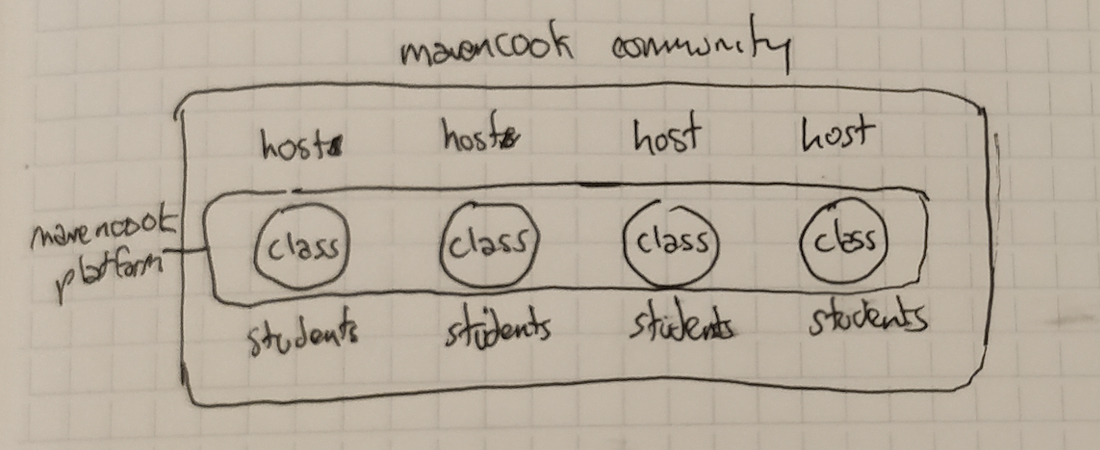 mavencook community
host host host host
mavencook
platform
class class class class
students students students students